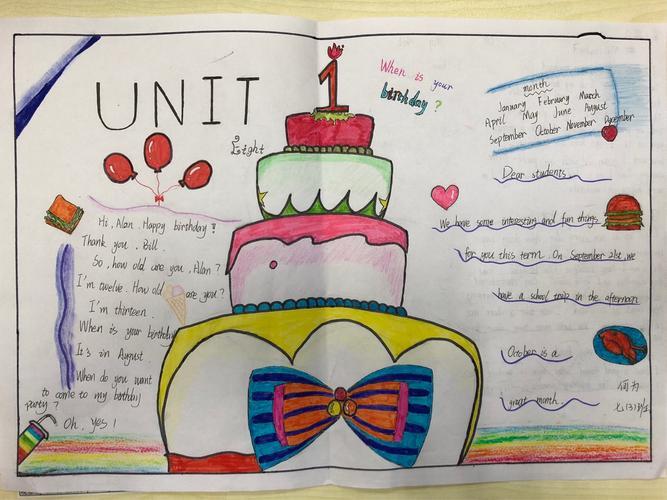 UNIT
1
Eight
When is your
birthday?
Hi, Alan. Happy birthday!
Thank you, Bill.
So, how old are you, Alan?
I'm twelve. How old are you?
I'm thirteen.
When is your birthday
It's in August.
When do you want
to come to my bithday
party?
Oh, yes!
month
January February March
April May June August
September October November December
Dear students
We have some interesting and fun things
for you this term. On September 21st, we
have a school trip in the afternoon
October is a
great month.